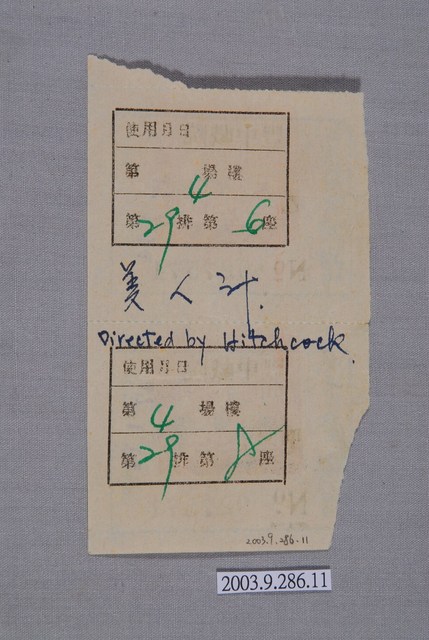 使用月日
第 4 場樓
第29排第6座
美人計.
Directed by Hitchcock.
使用月日
第 4 場樓
第29排第8座
2003.9.286.11
2003.9.286.11